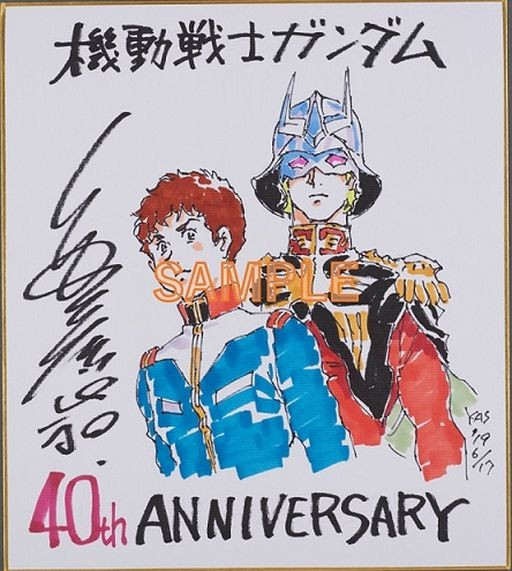 機動戦士ガンダム
SAMPLE
YAS
'19
6/17
40th ANNIVERSARY